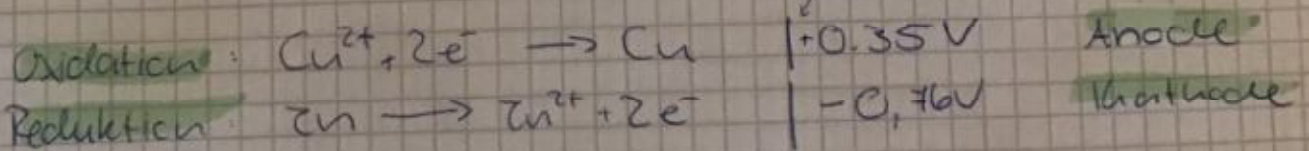 Oxidation: Cu²⁺ + 2e⁻ → Cu | +0.35V Anode
Reduktion: Zn → Zn²⁺ + 2e⁻ | -0,76V Khathode